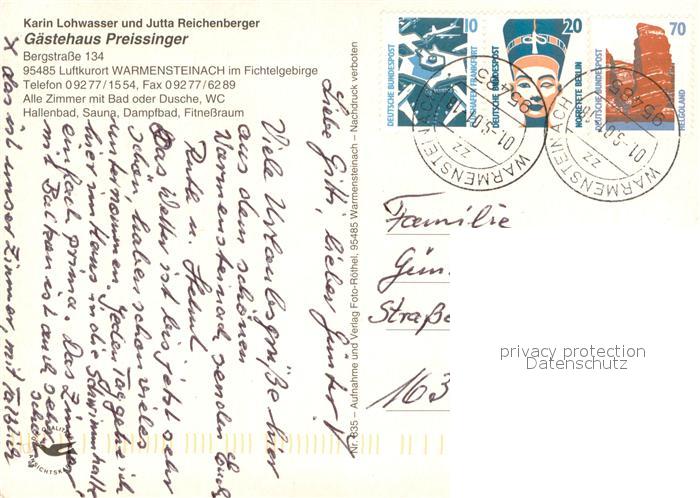 Karin Lohwasser und Jutta Reichenberger
Gästehaus Preissinger
Bergstraße 134
95485 Luftkurort WARMENSTEINACH im Fichtelgebirge
Telefon 0 92 77 / 15 54, Fax 0 92 77 / 62 89
Alle Zimmer mit Bad oder Dusche, WC
Hallenbad, Sauna, Dampfbad, Fitneßraum
Liebe Gitti, lieber Günter!
Viele Urlaubsgrüße hier
aus dem schönen
Warmensteinach senden Euch
Ruth u. Helmut
Das Wetter ist bis jetzt sehr
schön, haben schon vieles
unternommen. Jeden Tag gehe ich
hier im Haus in die Schwimmhalle
einfach prima. Das Zimmer
mit Balkon ist auch sehr
schön
X das ist unser Zimmer, mit
Nr. 635 – Aufnahme und Verlag Foto-Röthel, 95485 Warmensteinach – Nachdruck verboten
DEUTSCHE BUNDESPOST
10
FLUGHAFEN FRANKFURT
DEUTSCHE BUNDESPOST
20
NOFRETETE BERLIN
DEUTSCHE BUNDESPOST
70
HELGOLAND
95485
WARMENSTEINACH
95485
WARMENSTEINACH
Familie
Gün
Straße
163
privacy protection
Datenschutz
QUALITÄTS
ANSICHTSKARTE